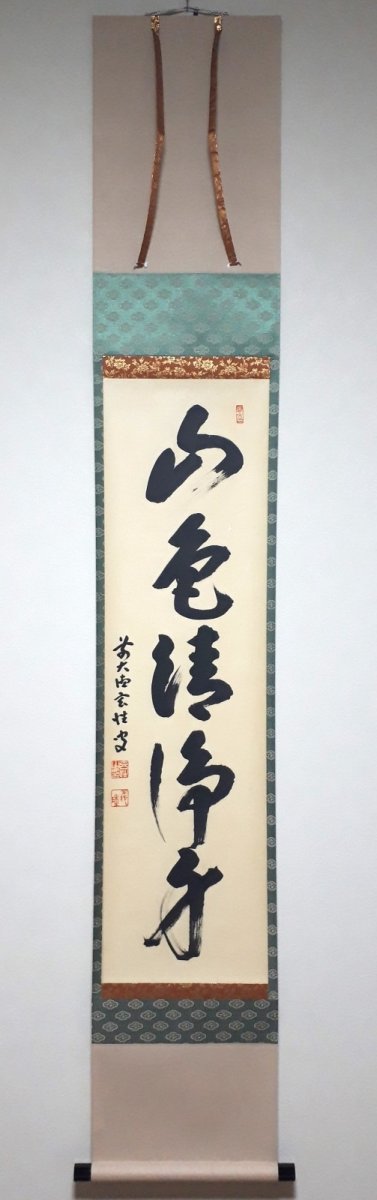 山色清浄身
前大徳玄性叟